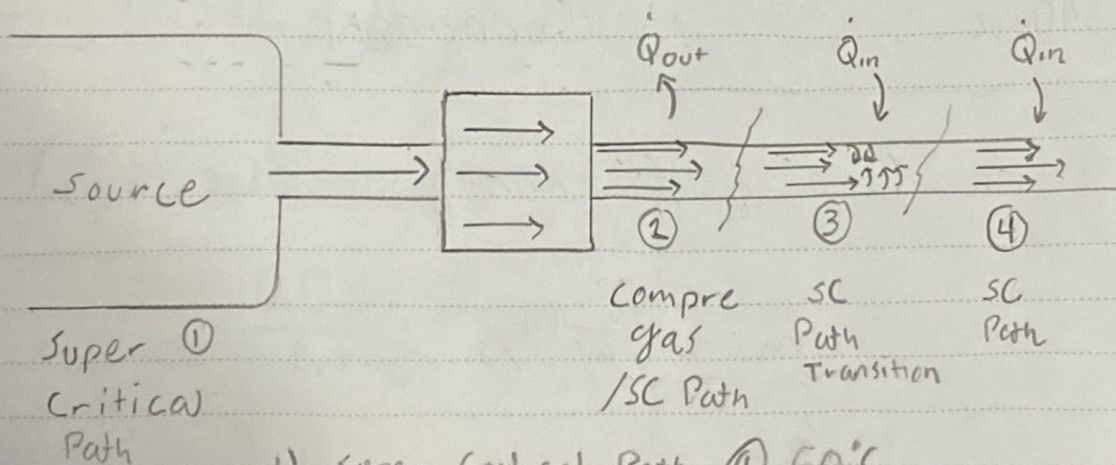 Q̇out
Q̇in
Q̇in
Source
②
③
④
Super ①
Critical
Path
Compre
gas
/SC Path
SC
Path
Transition
SC
Path
Path ① 50°C